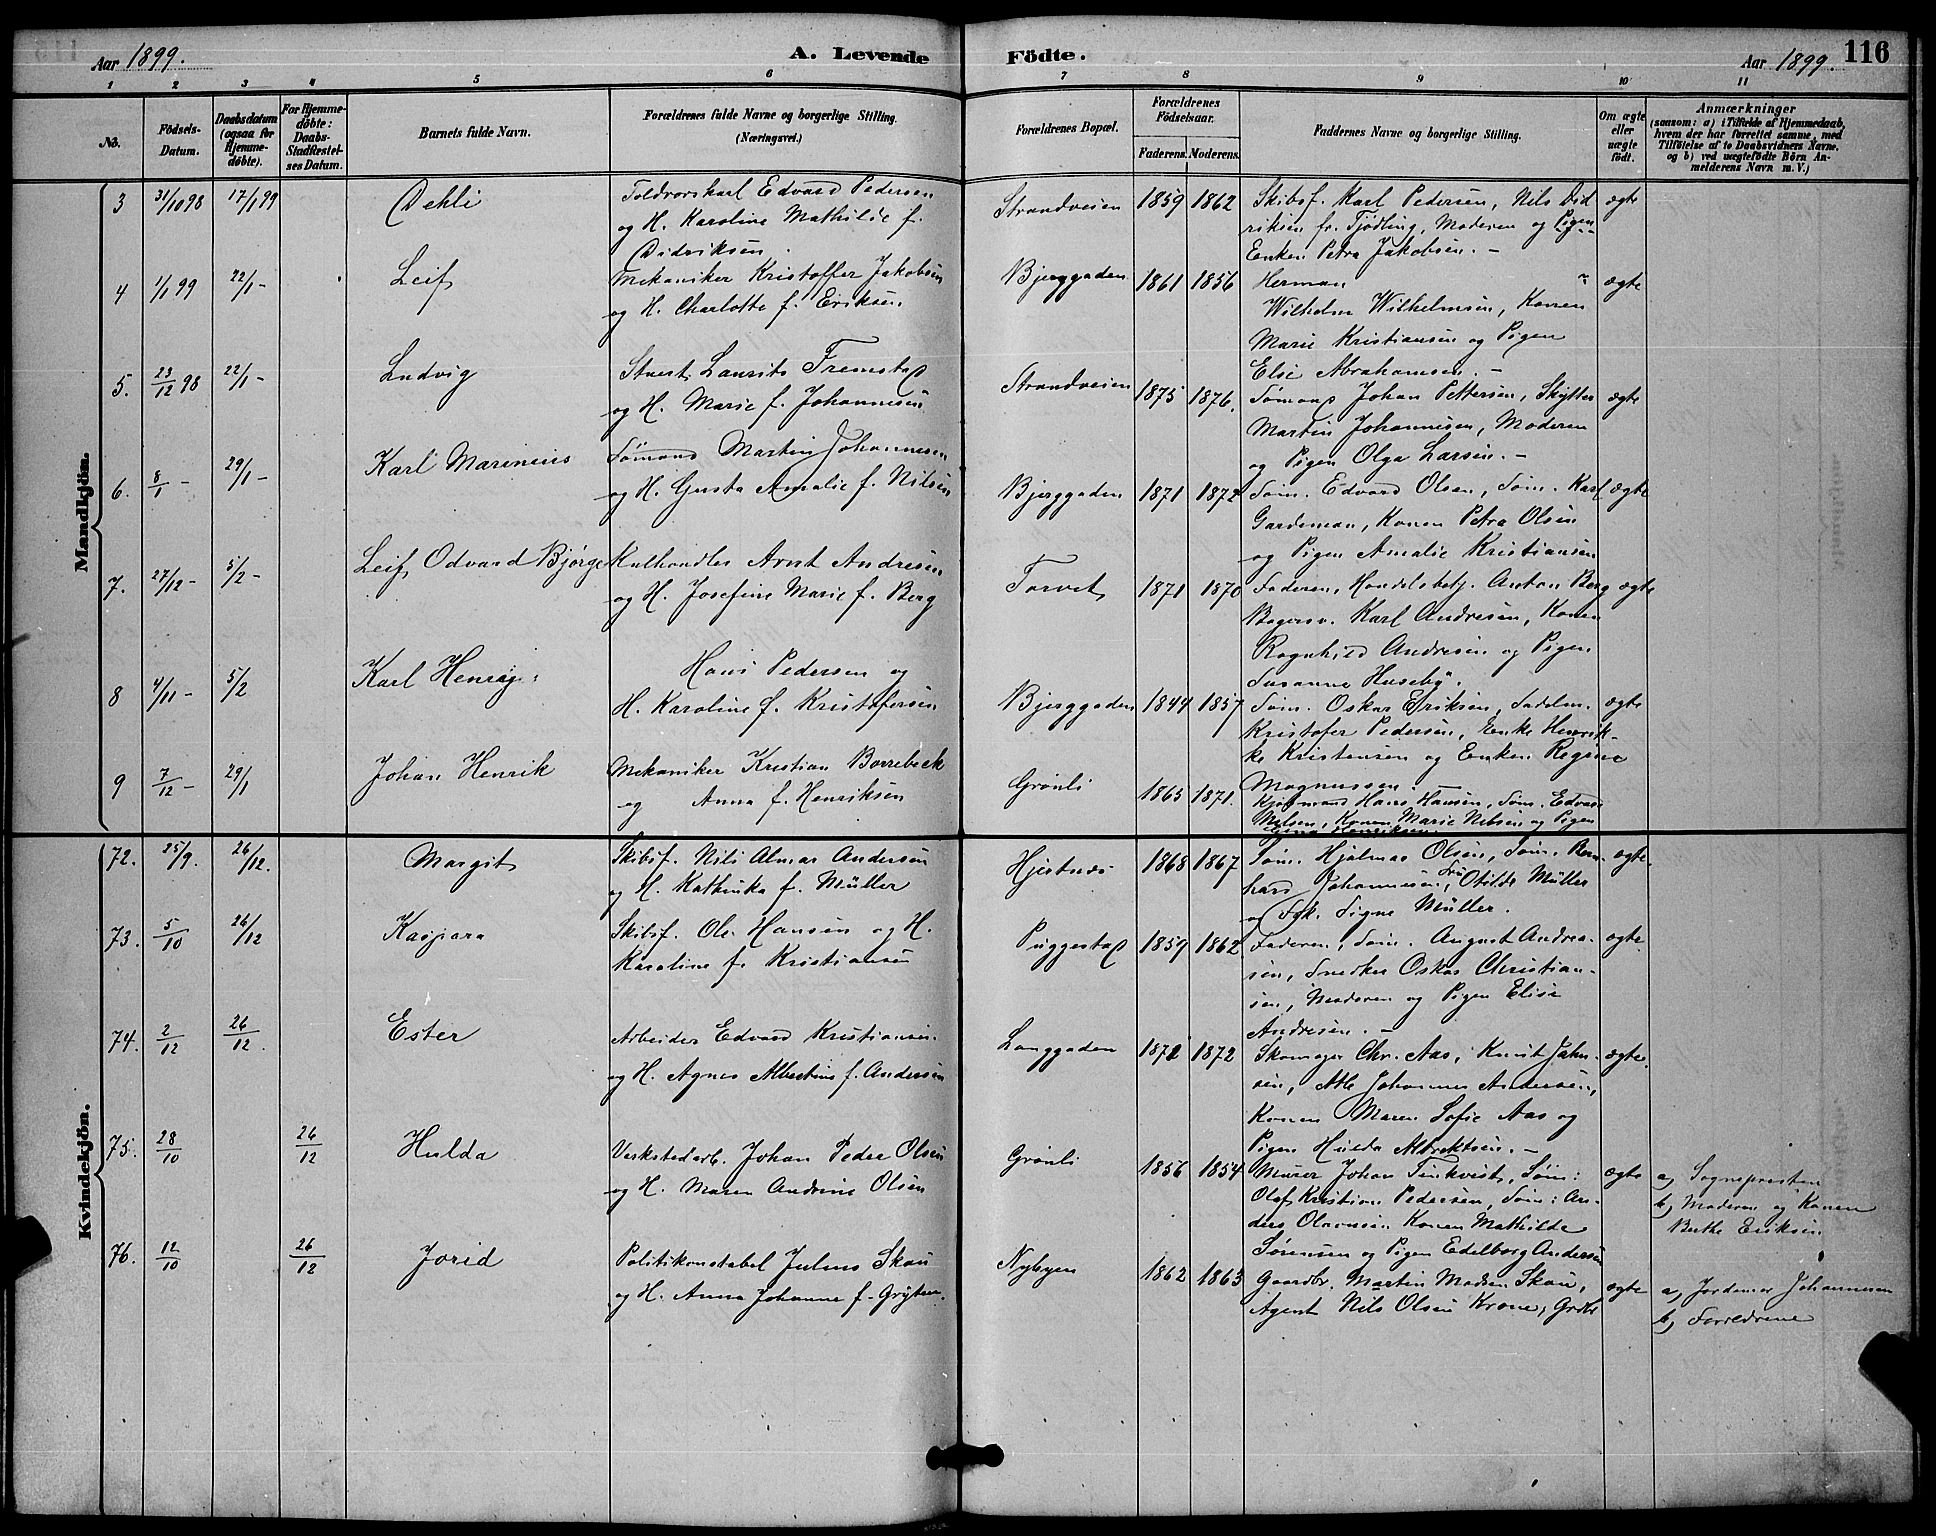 Aar 1899. A. Levende Födte. Aar 1899. 116
1 2 3 4 5 6 7 8 9 10 11
No. Födsels-Datum. Daabsdatum (ogsaa for Hjemmedöbte). For Hjemmedöbte: Daabs-Stadfæstelses Datum. Barnets fulde Navn. Forældrenes fulde Navne og borgerlige Stilling. (Næringsvei.) Forældrenes Bopæl. Forældrenes Födselsaar. Faderens. Moderens. Faddernes Navne og borgerlige Stilling. Om ægte eller uægte födt. Anmærkninger (saasom: a) i Tilfælde af Hjemmedaab, hvem der har forrettet samme, med Tilföielse af to Daabsvidners Navne, og b) ved uægtefödte Börn Anmelderens Navn m. V.)
Mandkjön.
3 31/10 98 17/1 99 Dehli Toldvorskarl Edvard Pedersen Strandveien 1859 1862 Skibsf. Karl Pedersen, Nils Did ægte
og H. Karoline Mathilde f. riksen fr. Tjödling, Moderen og Pigen
Didriksen. Enken Petra Jakobsen. –
4 1/1 99 22/1 – Leif Mekaniker Kristoffer Jakobsen Bjerggaden 1861 1856 Herman ægte
og H. Charlotte f. Eriksen. Wilhelm Wilhelmsen, Konen
Marie Kristiansen og Pigen
Else Abrahamsen. –
5. 23/12 98 22/1 – Ludvig Stuert Laurits Fremstad Strandveien 1875 1876. Sømand Johan Pettersen, Skytter ægte
og H. Marie f. Johannesen Martin Johannesen, Moderen
og Pigen Olga Larsen. –
6. 8/1 – 29/1 – Karl Marinius Sømand Martin Johannesen Bjerggaden 1871 1872 Søm. Edvard Olsen, Søm. Karl ægte
og H. Gusta Amalie f. Nilsen Gardeman, Konen Petra Olsen
og Pigen Amalie Kristiansen
7. 27/12 – 5/2 – Leif Odvard Bjørge Kulhandler Arnt Andresen Torvet 1871 1870 Faderen, Handelsbetj. Anton Berg ægte
og H. Josefine Marie f. Berg Bagersv. Karl Andresen, Konen
Ragnhild Andresen og Pigen
Susanna Huseby.
8 4/11 – 5/2 Karl Henrÿ Hans Pedersen og Bjerggaden 1844 1857 Søm. Oskar Eriksen, Sadelm. ægte
H. Karoline f. Kristofersen Kristofer Pedersen, Enke Henrik-
ke Kristensen og Enken Regine
Magnussen.
9 7/12 – 29/1 Johan Henrik Mekaniker Kristian Borrebæk Grønli 1865 1871. Kjøbmand Hans Hansen, Søm. Edvard
og Anna f. Henriksen Nilsen, Konen Marie Nilsen og Pigen
Kvindekjön.
72. 25/9. 26/12. Margit Skibsf. Nils Almar Andersen Hjertnes 1868 1867 Søm. Hjalmar Olsen, Søm. Bern- ægte
og H. Kathinka f. Müller hard Johannesen, Fru Otilde Müller
og Frk. Signe Müller.
73. 5/10 26/12 Kaspara Skibsf. Ole Hansen og H. Puggestad 1859 1862 Faderen, Søm. August Andrea- ægte
Karoline f. Kristiansen sen, Snedker Oskar Christian-
sen, Moderen og Pigen Elise
Andresen. –
74. 2/12 26/12. Ester Arbeider Edvard Kristiansen Langgaden 1872 1872 Skomager Chr. Aas, Knut Jahn- ægte
og H. Agnes Albertine f. Andersen sen, Arb Johannes Andersen,
Konen Maren Sofie Aas og
Pigen Hulda Albrektsen. –
75. 28/10 26/12 Hulda Verkstedarb. Johan Peder Olsen Grønli 1856 1854 Murer Johan Finkvist, Søm: ægte a, Sognepresten
og H. Maren Andrine Olsen Olaf Kristian Pedersen, Søm: An- b, Moderen og Konen
ders Olaussen Konen Mathilde Berthe Eriksen
Sørensen og Pigen Edelborg Andersen
76. 12/10 26/12 Jorid Politikonstabel Julius Skau Nybyen 1862 1863 Gaardbr. Martin Madsen Skau, ægte a, Jordemor Johannesen
og H. Anna Johanne f. Grÿtan. Agent Nils Olsen Krone, Grdbr b, Forældrene